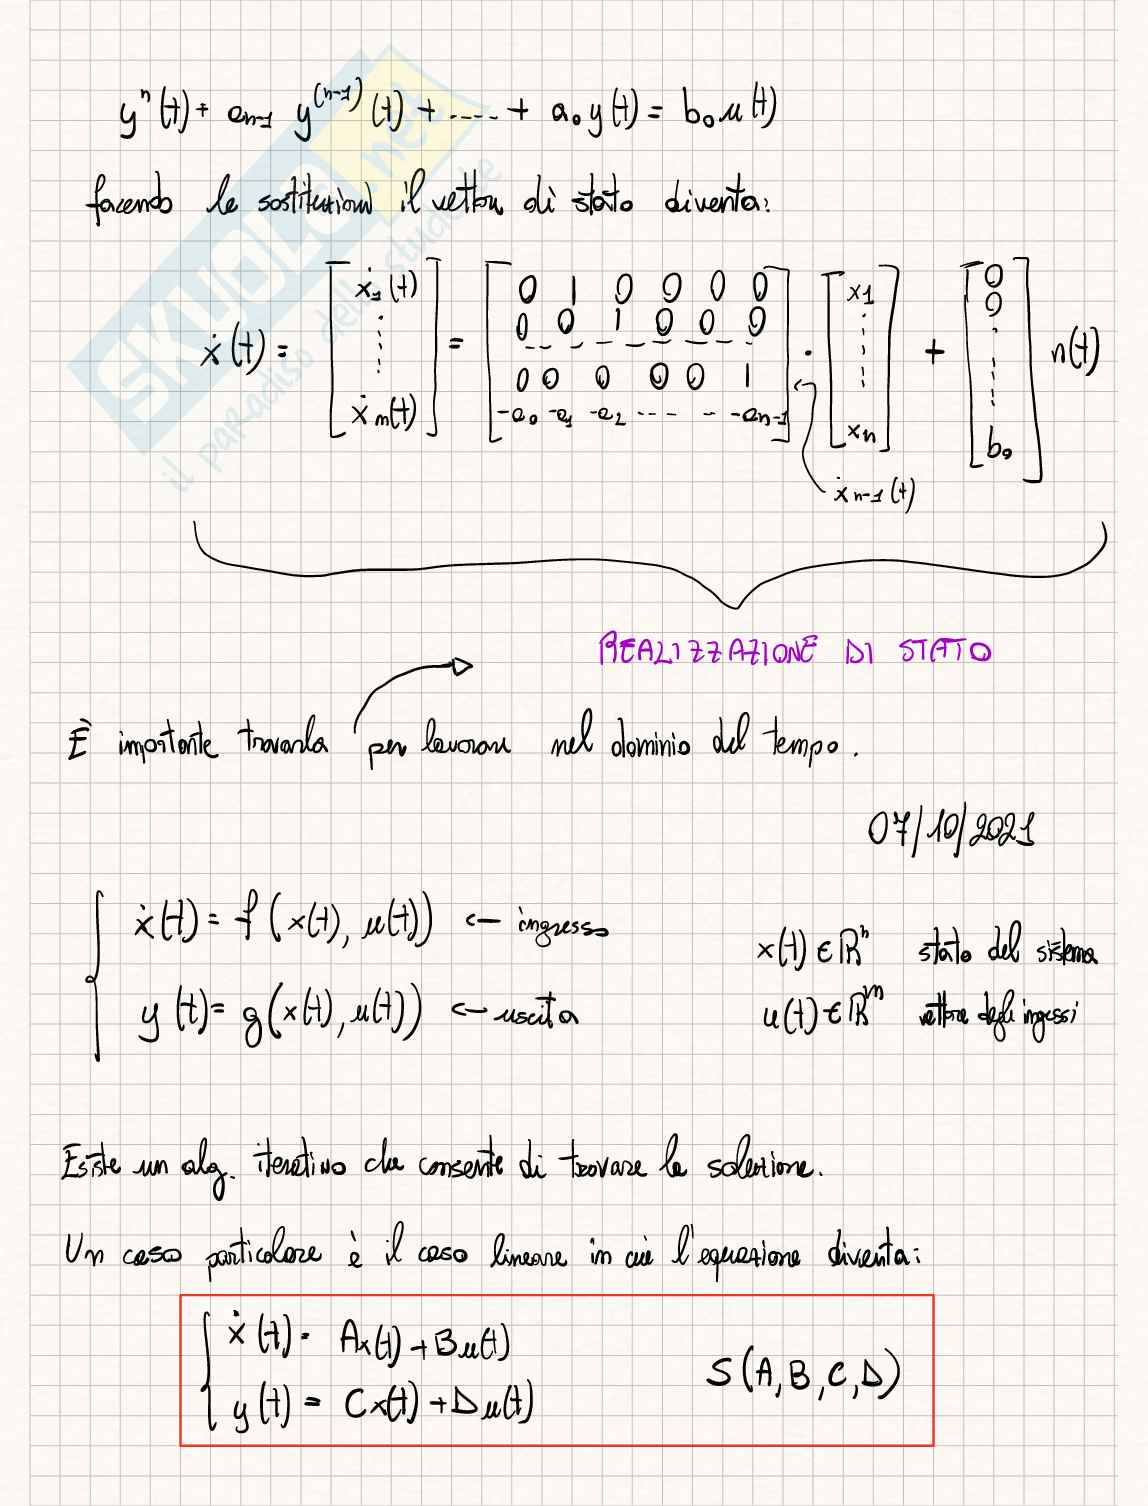 yⁿ(t) + aₙ₋₁ y⁽ⁿ⁻¹⁾(t) + .... + a₀ y(t) = b₀ u(t)
facendo le sostituzioni il vettore di stato diventa:
ẋ(t) = [ẋ₁(t) ⋮ ẋₙ(t)] = [0 1 0 0 0 0; 0 0 1 0 0 0; - - - - - -; 0 0 0 0 0 1; -a₀ -a₁ -a₂ --- - -aₙ₋₁] · [x₁ ⋮ xₙ] + [0 0 ⋮ b₀] u(t)
ẋₙ₋₁(t)
REALIZZAZIONE DI STATO
È importante trovarla per lavorare nel dominio del tempo.
07/10/2021
ẋ(t) = f(x(t), u(t)) ← ingresso
x(t) ∈ ℝⁿ stato del sistema
y(t) = g(x(t), u(t)) ← uscita
u(t) ∈ ℝᵐ vettore degli ingressi
Esiste un alg. iterativo che consente di trovare la soluzione.
Un caso particolare è il caso lineare in cui l'equazione diventa:
ẋ(t) = Ax(t) + Bu(t)
y(t) = Cx(t) + Du(t)
S(A,B,C,D)
SKUOLA.net
il paradiso dello studente